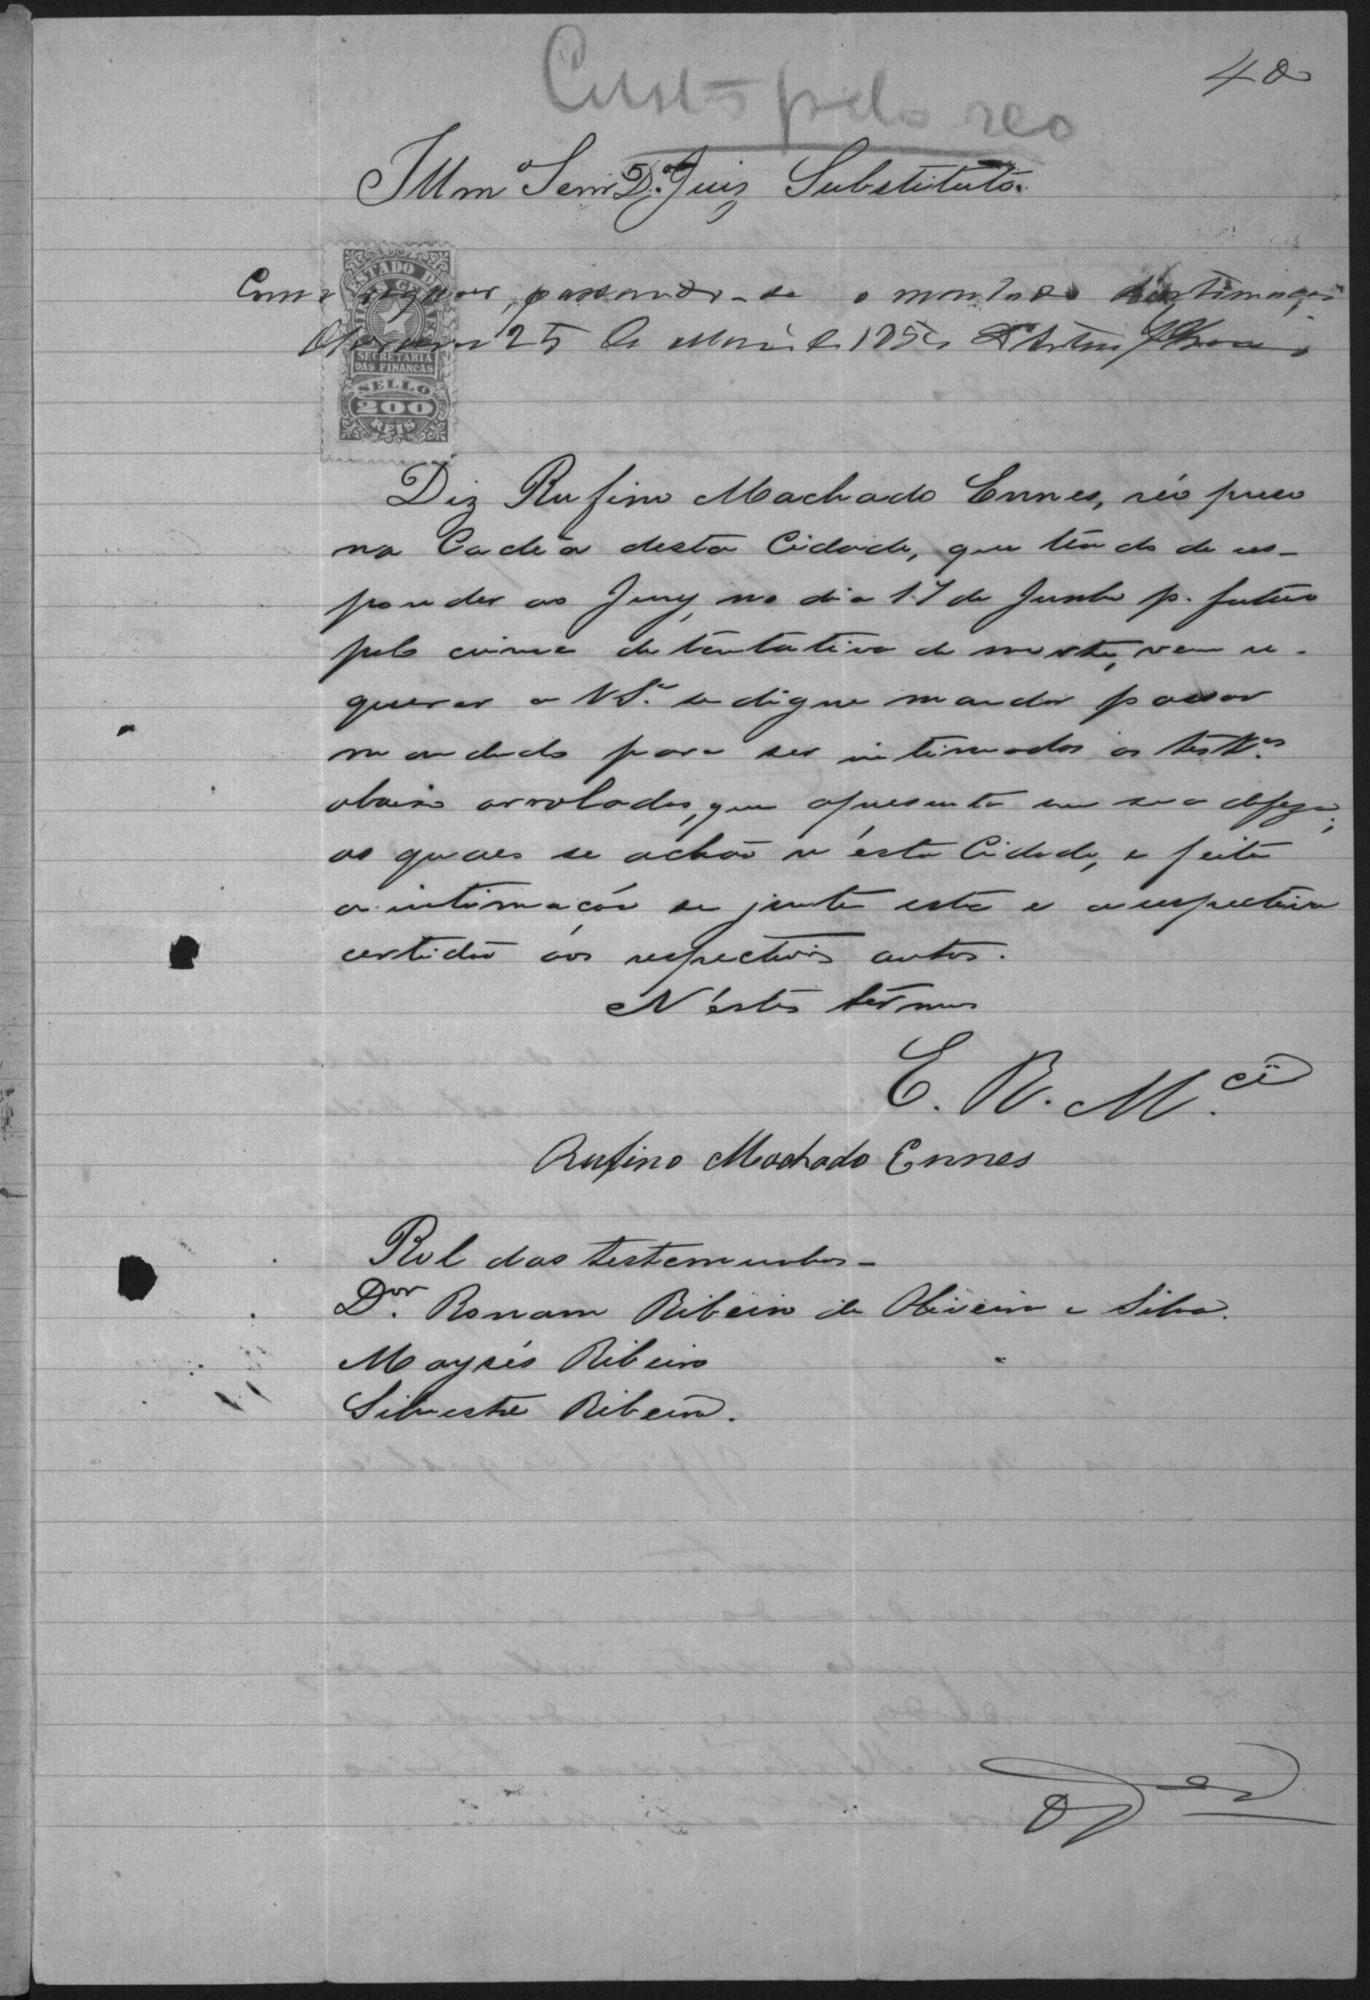 Custas pelo reo
40
Illmº Senr Dr. Juiz Substituto.
Como requer, passando-se o mandado de intimação
25 de Maio de
ESTADO DE
MINAS GERAES
SECRETARIA
DAS FINANÇAS
SELLO
200
REIS
Diz Rufino Machado Ennes, réo preso
na Cadêa desta Cidade, que tendo de res-
ponder ao Jury, no dia 17 de Junho p. futuro
pelo crime de tentativa de morte, vem re-
querer a V.S.ª se digne mandar passar
mandado para ser intimados as testªs
abaixo arroladas, que apresenta em sua defeza;
as quaes se achão n'ésta Cidade, e feita
a intimação se junte esta e a respectiva
certidão aos respectivos autos.
N'éstes têrmos
E. R. M.cê
Rufino Machado Ennes
Rol das testemunhas-
Dor. Ronam Ribeiro de Oliveira e Silva.
Moysés Ribeiro
Silvestre Ribeiro.